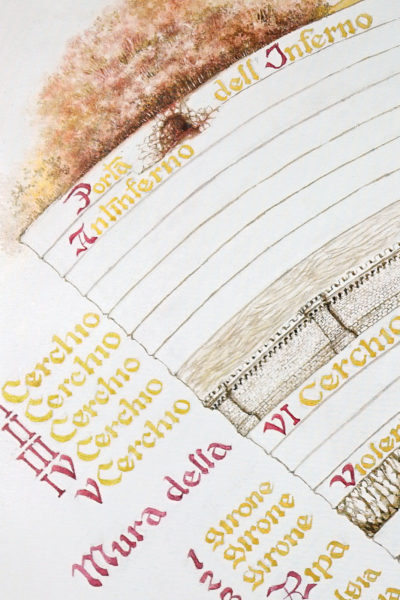 Porta dell'Inferno
Antinferno
I Cerchio
II Cerchio
III Cerchio
IV Cerchio
V Cerchio
VI Cerchio
Mura della
Violen
1 Girone
2 Girone
3 Girone
Ripa